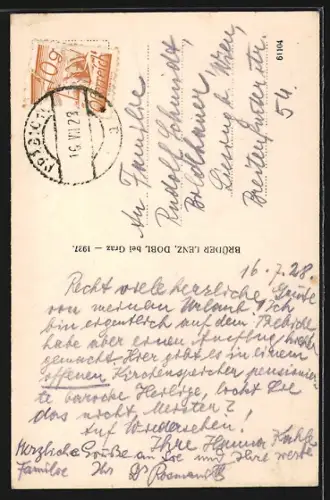 10 g
Österreich
PREBICHL
16.VII.28
61104
An Familie
Rudolf Schmidt,
Bildhauer,
Liesing b. Wien,
Breitenfurterstr.
54.
BRÜDER LENZ, DOBL bei Graz — 1927.
16.7.28.
Recht viele herzliche Grüße
von meinem Urlaub! Ich
bin eigentlich auf dem Prebichl
habe aber einen Ausflug hierher
gemacht. Hier gibt es in einem
offenen Kirchenspeicher pensionier-
te barocke Heilige, lockt Sie
das nicht, Meister?
Auf Wiedersehen!
Ihre Hanna
Herzliche Grüße an Sie und Ihre werte
Familie Ihr Dr